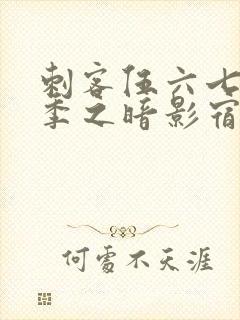 刺客伍六七
季之暗影宿
何处不天涯